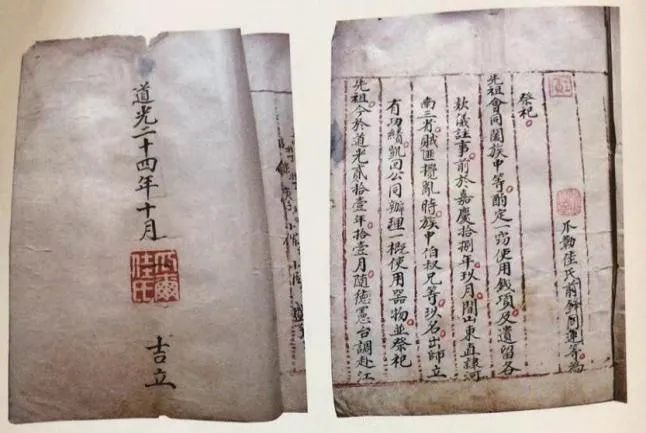 道光二十四年十月
瓜爾
佳氏
吉立
爪勒佳氏前鋒同連等為
祭祀
先祖會同閤族中等酌定一窃使用錢項及遺留各
欵儀註事前於嘉慶拾捌年玖月間山東直隸河
南三省賊匪攪亂時族中伯叔兄等玖名出師立
有功績凱回公同辦理一概使用器物並祭祀
先祖今於道光貳拾壹年拾壹月隨德憲台調赴江